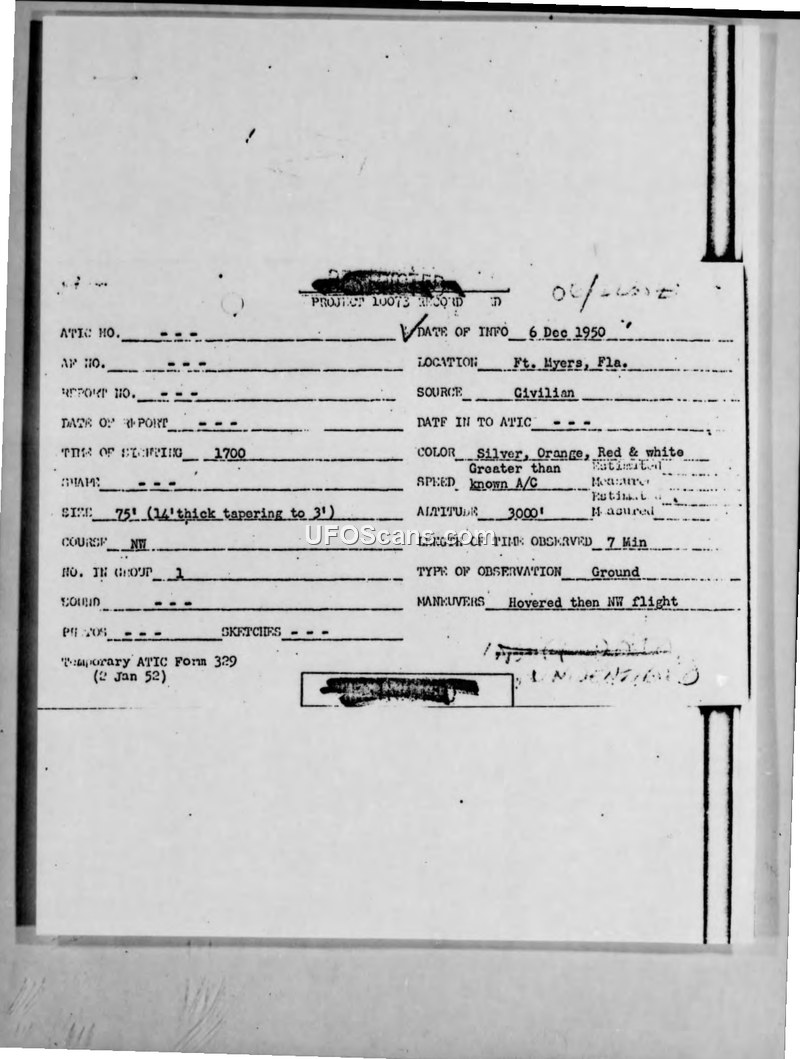 PROJECT 10073 RECORD
ATIC NO. - - -
DATE OF INFO 6 Dec 1950
AF NO. - - -
LOCATION Ft. Myers, Fla.
REPORT NO. - - -
SOURCE Civilian
DATE OF REPORT - - -
DATE IN TO ATIC - - -
TIME OF SIGHTING 1700
COLOR Silver, Orange, Red & white
SHAPE - - -
SPEED Greater than known A/C
Estimated
Measured
SIZE 75' (14'thick tapering to 3')
ALTITUDE 3000'
Estimated
Measured
COURSE NW
LENGTH OF TIME OBSERVED 7 Min
NO. IN GROUP 1
TYPE OF OBSERVATION Ground
SOUND - - -
MANEUVERS Hovered then NW flight
PHOTOS - - - SKETCHES - - -
Temporary ATIC Form 329
(2 Jan 52)
UNIDENTIFIED
UFOScans.com